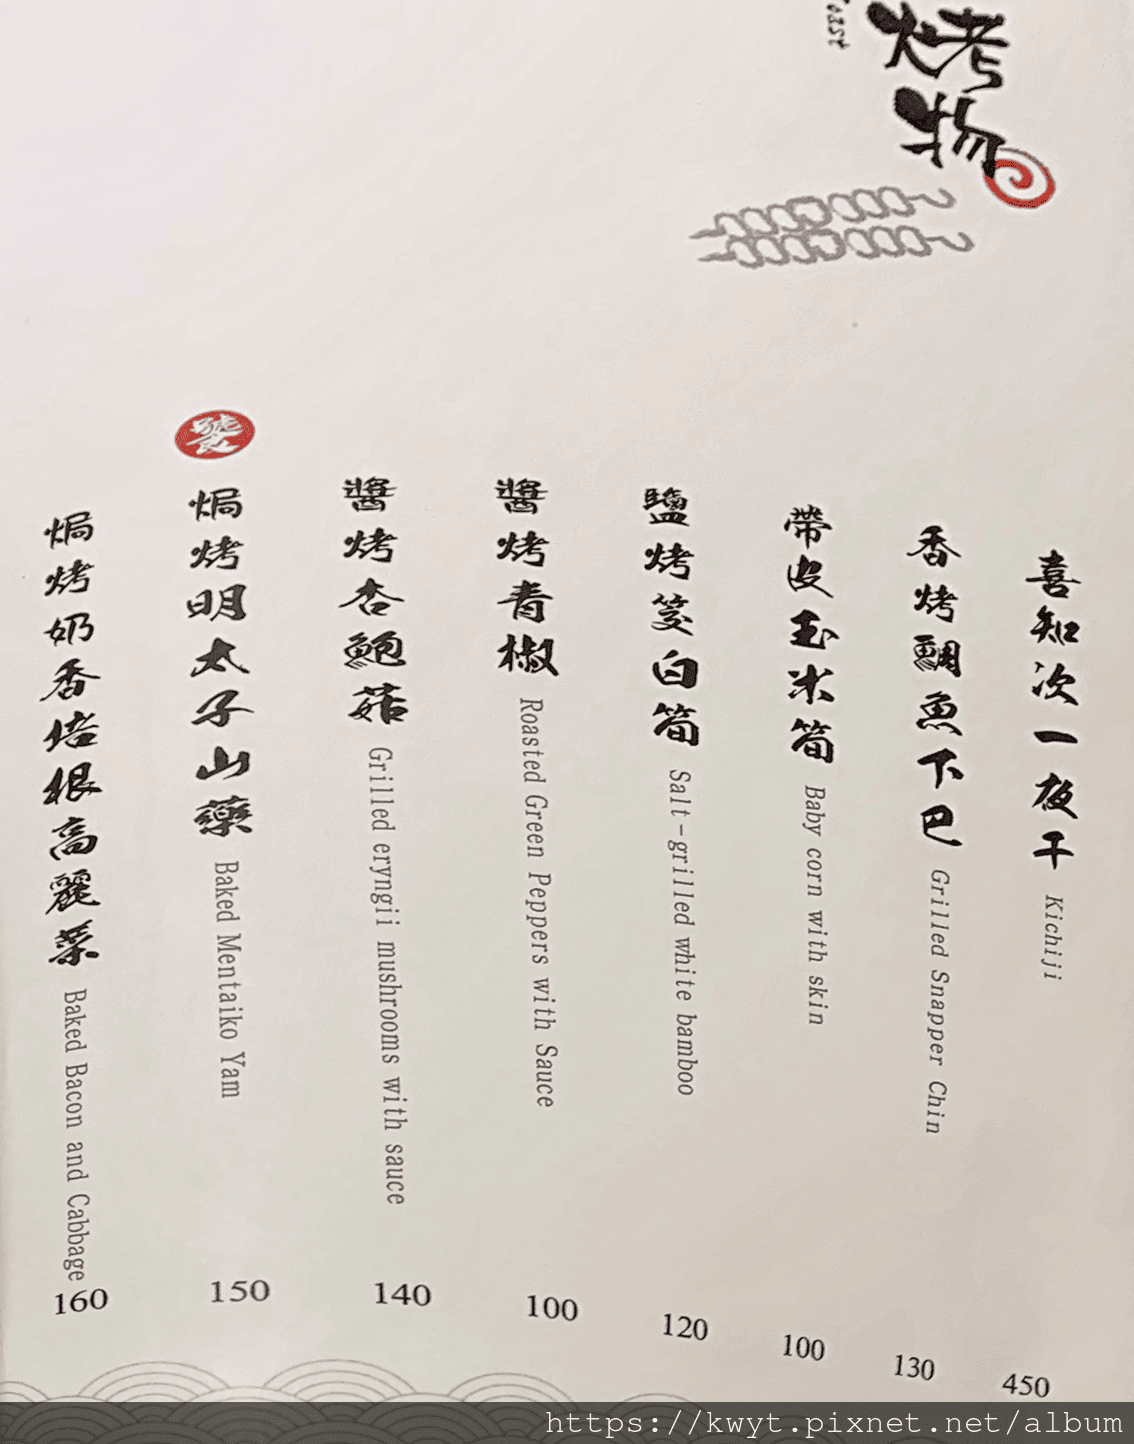 烤物
喜知次一夜干 Kichiji
450
香烤鯛魚下巴 Grilled Snapper Chin
130
帶皮玉米筍 Baby corn with skin
100
鹽烤筊白筍 Salt-grilled white bamboo
120
醬烤青椒 Roasted Green Peppers with Sauce
100
醬烤杏鮑菇 Grilled eryngii mushrooms with sauce
140
焗烤明太子山藥 Baked Mentaiko Yam
150
焗烤奶香培根高麗菜 Baked Bacon and Cabbage
160
https://kwyt.pixnet.net/album